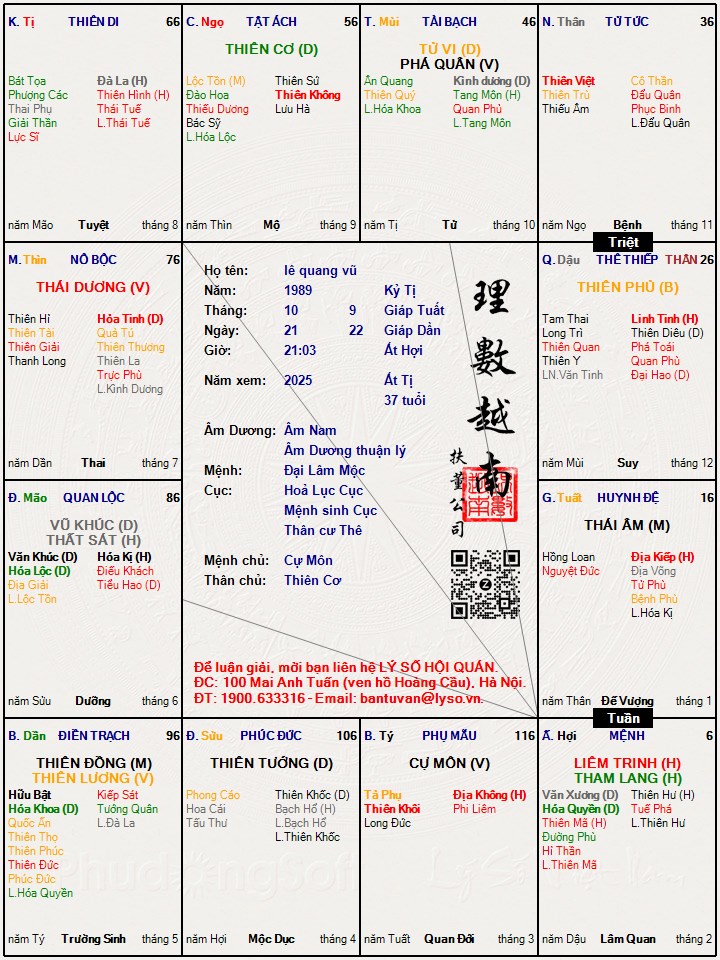 K. Tị THIÊN DI 66
Bát Tọa
Phượng Các
Thai Phụ
Giải Thần
Lực Sĩ
Đà La (H)
Thiên Hình (H)
Thái Tuế
L.Thái Tuế
năm Mão Tuyệt tháng 8
C. Ngọ TẬT ÁCH 56
THIÊN CƠ (D)
Lộc Tồn (M)
Đào Hoa
Thiếu Dương
Bác Sỹ
L.Hóa Lộc
Thiên Sứ
Thiên Không
Lưu Hà
năm Thìn Mộ tháng 9
T. Mùi TÀI BẠCH 46
TỬ VI (D)
PHÁ QUÂN (V)
Ân Quang
Thiên Quý
L.Hóa Khoa
Kình dương (D)
Tang Môn (H)
Quan Phủ
L.Tang Môn
năm Tị Tử tháng 10
N. Thân TỬ TỨC 36
Thiên Việt
Thiên Trù
Thiếu Âm
Cô Thần
Đẩu Quân
Phục Binh
L.Đẩu Quân
năm Ngọ Bệnh tháng 11
Triệt
M. Thìn NÔ BỘC 76
THÁI DƯƠNG (V)
Thiên Hỉ
Thiên Tài
Thiên Giải
Thanh Long
Hỏa Tinh (D)
Quả Tú
Thiên Thương
Thiên La
Trực Phù
L.Kình Dương
năm Dần Thai tháng 7
Họ tên: lê quang vũ
Năm: 1989 Kỷ Tị
Tháng: 10 9 Giáp Tuất
Ngày: 21 22 Giáp Dần
Giờ: 21:03 Ất Hợi
Năm xem: 2025 Ất Tị
37 tuổi
Âm Dương: Âm Nam
Âm Dương thuận lý
Mệnh: Đại Lâm Mộc
Cục: Hoả Lục Cục
Mệnh sinh Cục
Thân cư Thê
Mệnh chủ: Cự Môn
Thân chủ: Thiên Cơ
理數越南
扶董公司
Để luận giải, mời bạn liên hệ LÝ SỐ HỘI QUÁN.
ĐC: 100 Mai Anh Tuấn (ven hồ Hoàng Cầu), Hà Nội.
ĐT: 1900.633316 - Email: bantuvan@lyso.vn.
Q. Dậu THÊ THIẾP THÂN 26
THIÊN PHỦ (B)
Tam Thai
Long Trì
Thiên Quan
Thiên Y
LN.Văn Tinh
Linh Tinh (H)
Thiên Diêu (D)
Phá Toái
Quan Phù
Đại Hao (D)
năm Mùi Suy tháng 12
Đ. Mão QUAN LỘC 86
VŨ KHÚC (D)
THẤT SÁT (H)
Văn Khúc (D)
Hóa Lộc (D)
Địa Giải
L.Lộc Tồn
Hóa Kị (H)
Điếu Khách
Tiểu Hao (D)
năm Sửu Dưỡng tháng 6
G. Tuất HUYNH ĐỆ 16
THÁI ÂM (M)
Hồng Loan
Nguyệt Đức
Địa Kiếp (H)
Địa Võng
Tử Phù
Bệnh Phù
L.Hóa Kị
năm Thân Đế Vượng tháng 1
Tuần
B. Dần ĐIỀN TRẠCH 96
THIÊN ĐỒNG (M)
THIÊN LƯƠNG (V)
Hữu Bật
Hóa Khoa (D)
Quốc Ấn
Thiên Thọ
Thiên Phúc
Thiên Đức
Phúc Đức
L.Hóa Quyền
Kiếp Sát
Tướng Quân
L.Đà La
năm Tý Trường Sinh tháng 5
Đ. Sửu PHÚC ĐỨC 106
THIÊN TƯỚNG (D)
Phong Cáo
Hoa Cái
Tấu Thư
Thiên Khốc (D)
Bạch Hổ (H)
L.Bạch Hổ
L.Thiên Khốc
năm Hợi Mộc Dục tháng 4
B. Tý PHỤ MẪU 116
CỰ MÔN (V)
Tả Phụ
Thiên Khôi
Long Đức
Địa Không (H)
Phi Liêm
năm Tuất Quan Đới tháng 3
Ấ. Hợi MỆNH 6
LIÊM TRINH (H)
THAM LANG (H)
Văn Xương (D)
Hóa Quyền (D)
Thiên Mã (H)
Đường Phù
Hỉ Thần
L.Thiên Mã
Thiên Hư (H)
Tuế Phá
L.Thiên Hư
năm Dậu Lâm Quan tháng 2